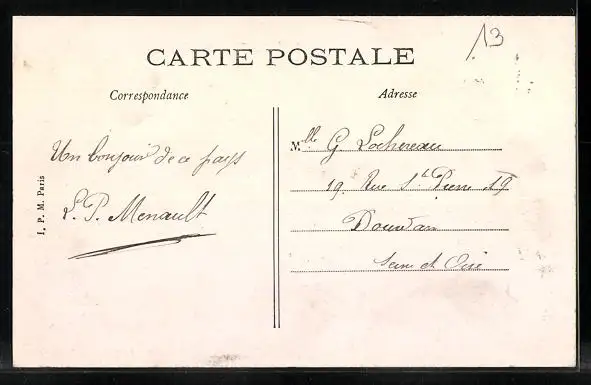 13
CARTE POSTALE
Correspondance
Adresse
Un bonjour de ce pays
L. P. Menault
Mlle G. Lochereau
19. Rue St Pierre 19
Dourdan
Seine et Oise
I. P. M. Paris